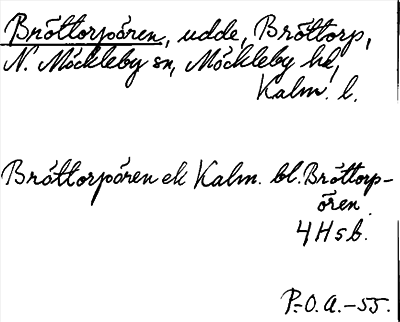 Bröttorpören, udde, Bröttorp,
N. Möckleby sn, Möckleby hd,
Kalm. l.
Bröttorpören ek Kalm. bl. Bröttorp-
ören.
4 H s b.
P.-O. A. - 55.